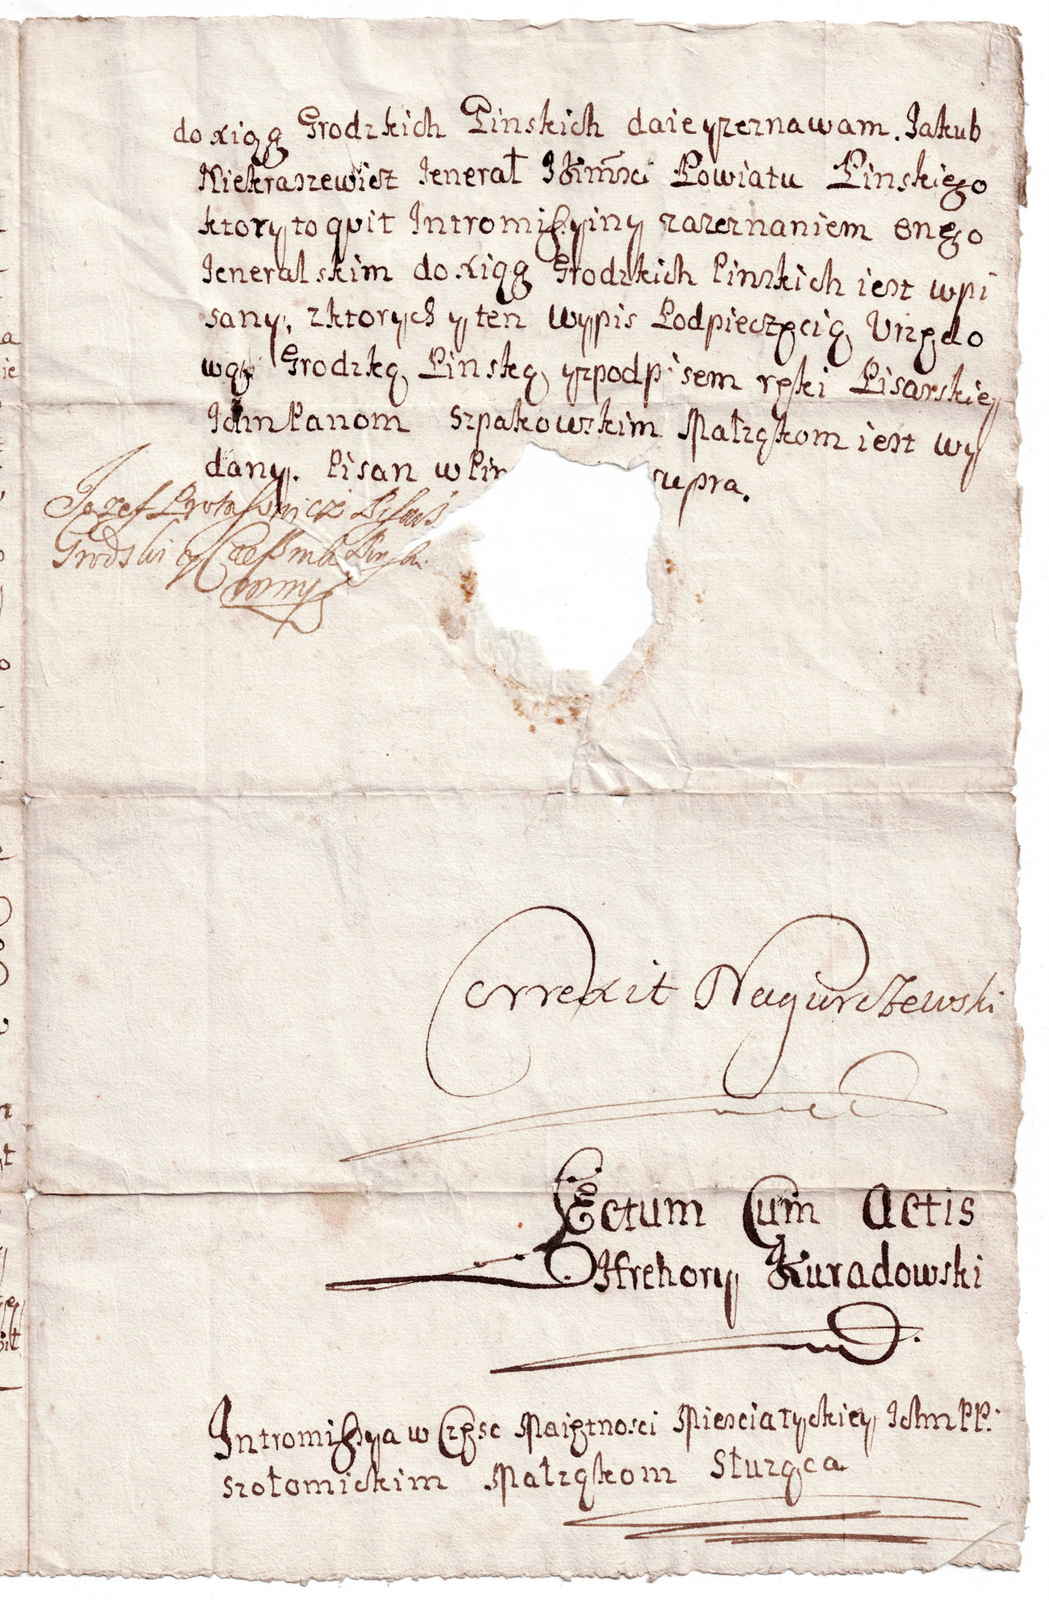 do xiąg Grodzkich Pinskich daie yzeznawam. Jakub
Niekraszewicz Jenerał JKMsci Powiatu Pinskiego
ktory to qvit Intromissyiny zazeznaniem onego
Jeneralskim do xiąg Grodzkich Pinskich iest wpi
sany, zktorych y ten wypis Podpieczęcią Urzędo
wą Grodzką Pinską ypodpisem ręki Pisarskiey
Ichm Panom Szpakowskim Małząkom iest wy
dany. Pisan w Pin supra.
Jozef Protassowicz Pisarz
Grodski y
Correxit Nagurczewski
Lectum Cum Actis
Hrehory Kuradowski
Intromissya w Częsc Maiętnosci Miesciatyckiey Ichm PP.
Szołomickim Małząkom Słuząca